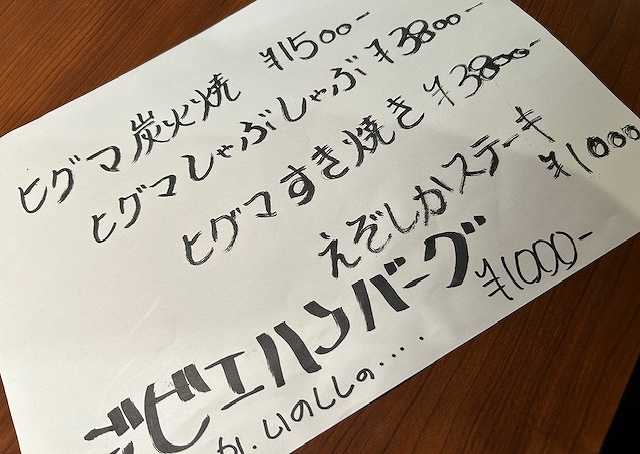 ヒグマ 炭火焼 ¥1500-
ヒグマ しゃぶしゃぶ ¥3800-
ヒグマ すき焼き ¥3800-
えぞしかステーキ ¥1000
ジビエハンバーグ ¥1000-
か.いのししの....